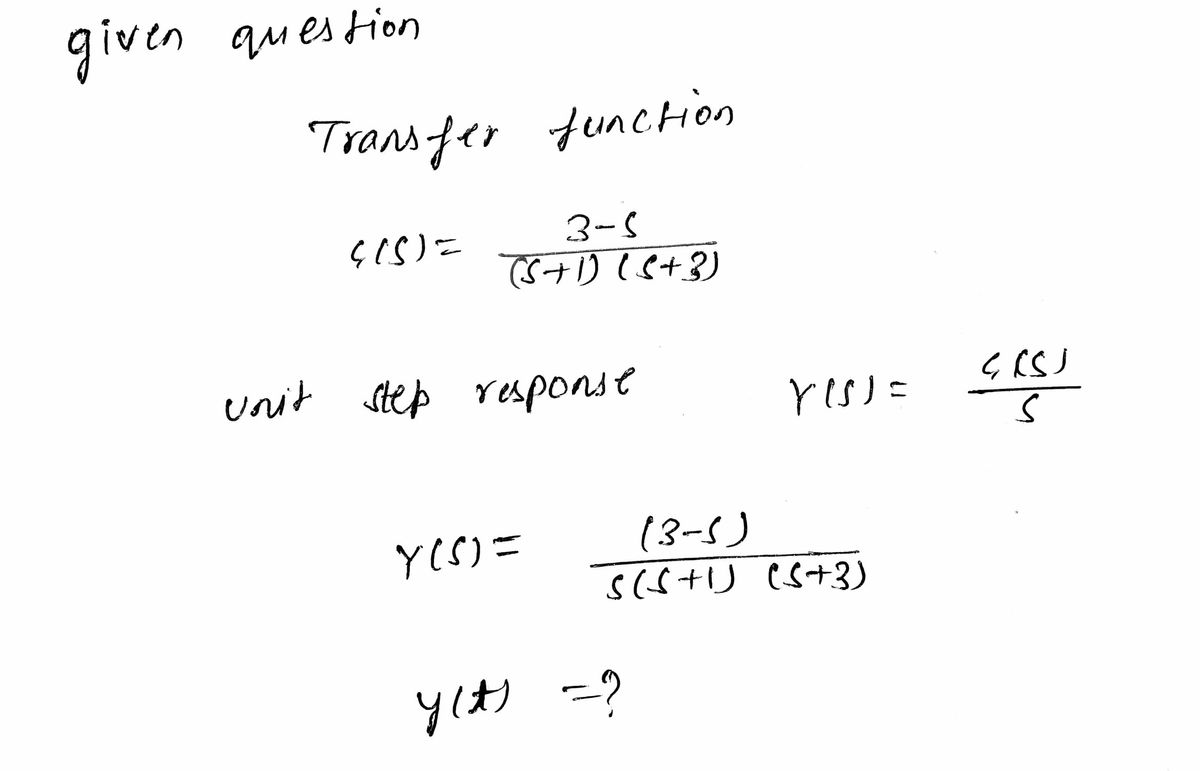 given question
Transfer function
G(s) = 3-s / (s+1) (s+3)
unit step response Y(s) = G(s) / s
Y(s) = (3-s) / s(s+1) (s+3)
y(t) =?